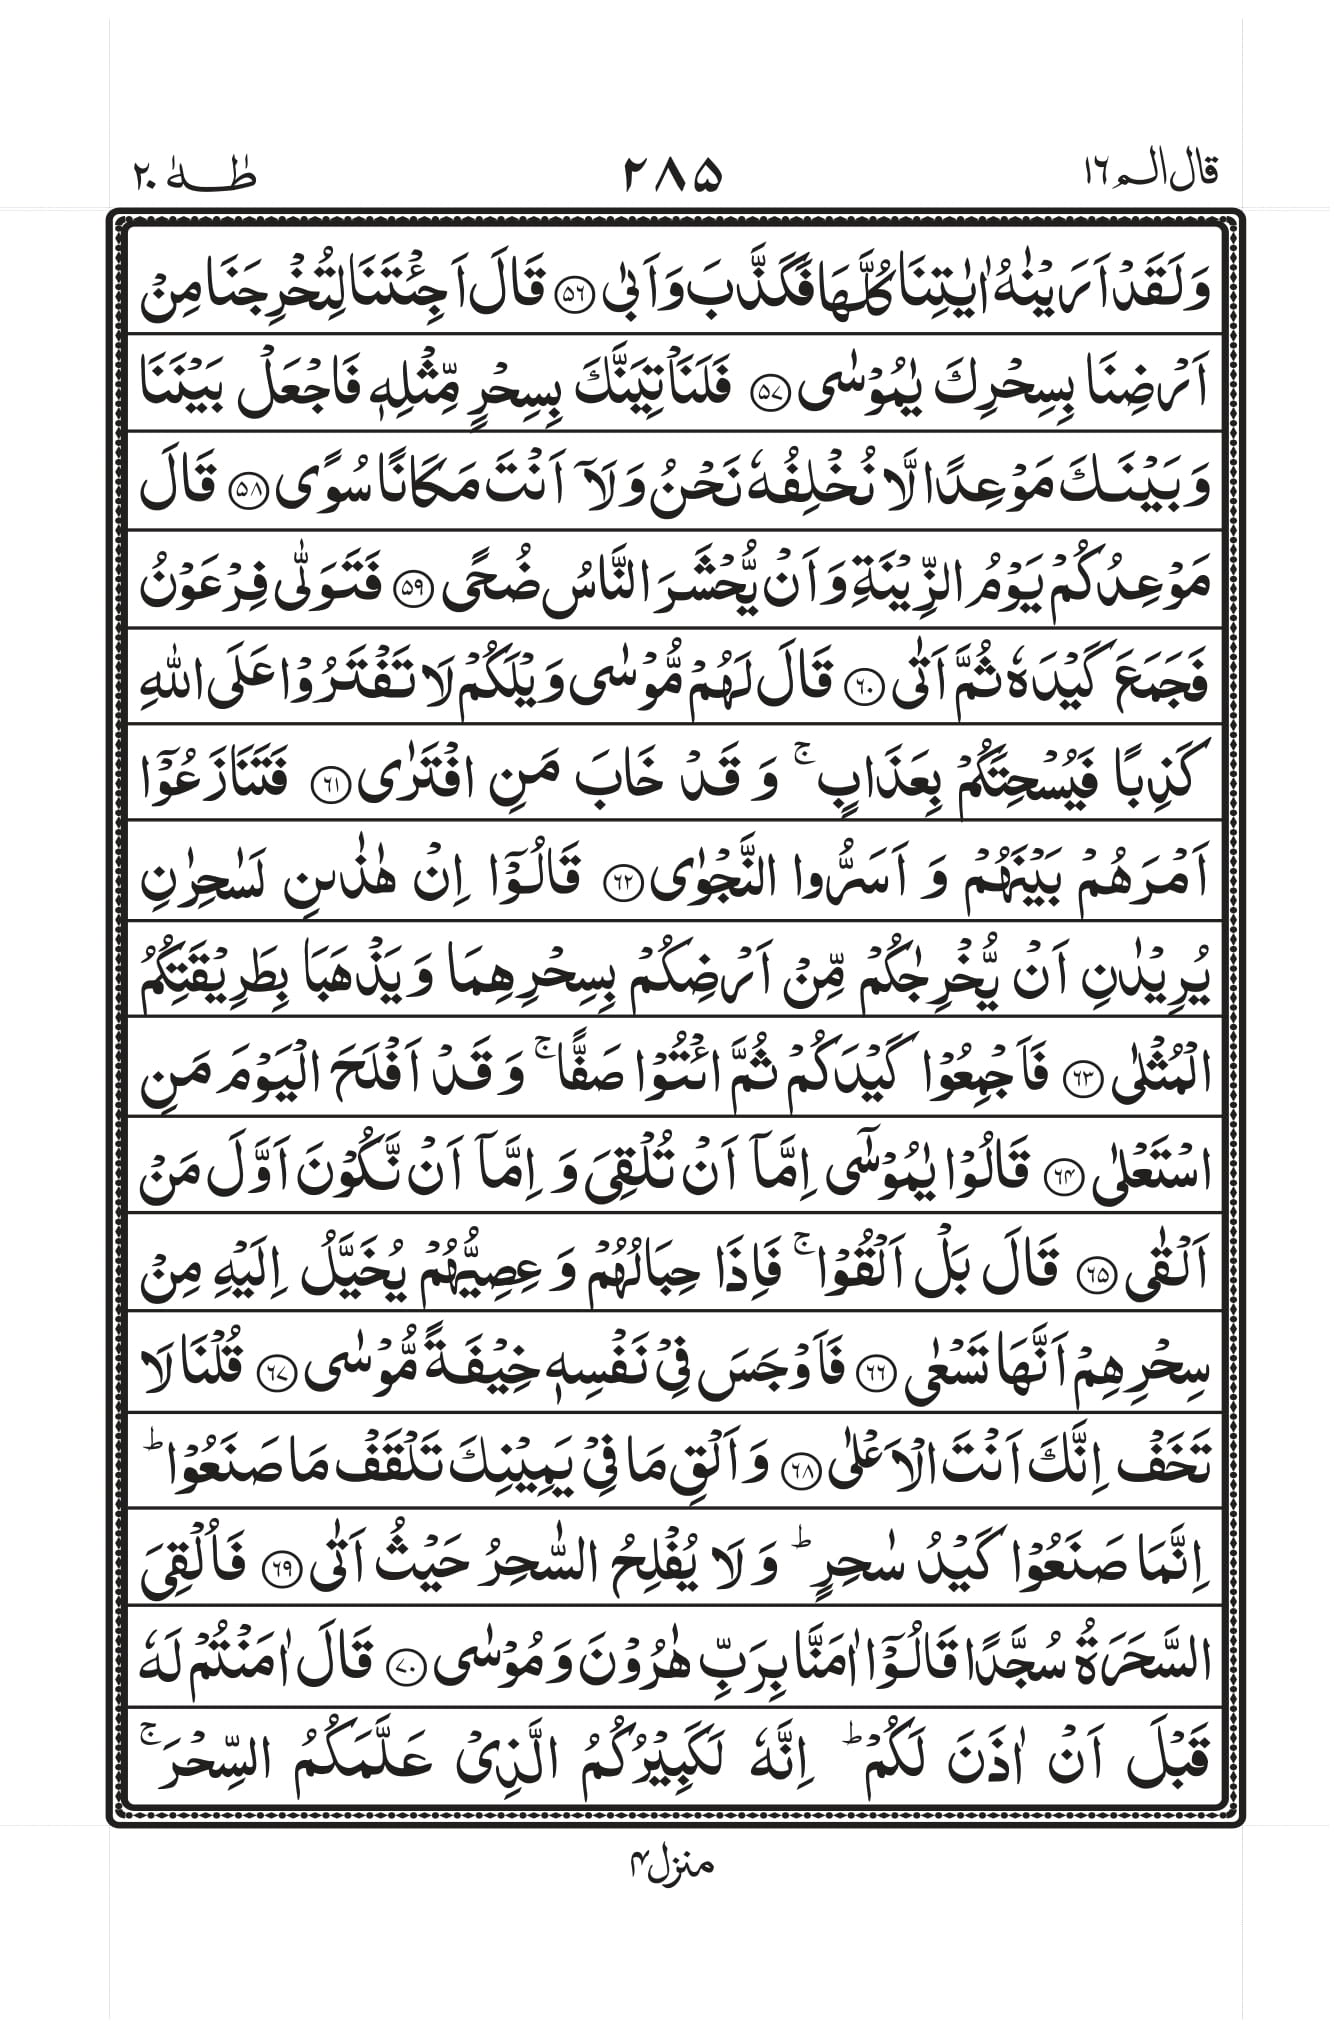 قال الم ١٦
٢٨٥
طٰهٰ ٢٠
وَلَقَدْ اَرَيْنٰهُ اٰيٰتِنَا كُلَّهَا فَكَذَّبَ وَاَبٰى ﴿۵۶﴾ قَالَ اَجِئْتَنَا لِتُخْرِجَنَا مِنْ
اَرْضِنَا بِسِحْرِكَ يٰمُوْسٰى ﴿۵۷﴾ فَلَنَاْتِيَنَّكَ بِسِحْرٍ مِّثْلِهٖ فَاجْعَلْ بَيْنَنَا
وَبَيْنَكَ مَوْعِدًا لَّا نُخْلِفُهٗ نَحْنُ وَلَآ اَنْتَ مَكَانًا سُوًى ﴿۵۸﴾ قَالَ
مَوْعِدُكُمْ يَوْمُ الزِّيْنَةِ وَاَنْ يُّحْشَرَ النَّاسُ ضُحًى ﴿۵۹﴾ فَتَوَلّٰى فِرْعَوْنُ
فَجَمَعَ كَيْدَهٗ ثُمَّ اَتٰى ﴿۶۰﴾ قَالَ لَهُمْ مُّوْسٰى وَيْلَكُمْ لَا تَفْتَرُوْا عَلَى اللّٰهِ
كَذِبًا فَيُسْحِتَكُمْ بِعَذَابٍ ۚ وَ قَدْ خَابَ مَنِ افْتَرٰى ﴿۶۱﴾ فَتَنَازَعُوْٓا
اَمْرَهُمْ بَيْنَهُمْ وَ اَسَرُّوا النَّجْوٰى ﴿۶۲﴾ قَالُوْٓا اِنْ هٰذٰىنِ لَسٰحِرٰنِ
يُرِيْدٰنِ اَنْ يُّخْرِجٰكُمْ مِّنْ اَرْضِكُمْ بِسِحْرِهِمَا وَيَذْهَبَا بِطَرِيْقَتِكُمُ
الْمُثْلٰى ﴿۶۳﴾ فَاَجْمِعُوْا كَيْدَكُمْ ثُمَّ ائْتُوْا صَفًّا ۚ وَقَدْ اَفْلَحَ الْيَوْمَ مَنِ
اسْتَعْلٰى ﴿۶۴﴾ قَالُوْا يٰمُوْسٰٓى اِمَّآ اَنْ تُلْقِىَ وَ اِمَّآ اَنْ نَّكُوْنَ اَوَّلَ مَنْ
اَلْقٰى ﴿۶۵﴾ قَالَ بَلْ اَلْقُوْا ۚ فَاِذَا حِبَالُهُمْ وَ عِصِيُّهُمْ يُخَيَّلُ اِلَيْهِ مِنْ
سِحْرِهِمْ اَنَّهَا تَسْعٰى ﴿۶۶﴾ فَاَوْجَسَ فِىْ نَفْسِهٖ خِيْفَةً مُّوْسٰى ﴿۶۷﴾ قُلْنَا لَا
تَخَفْ اِنَّكَ اَنْتَ الْاَعْلٰى ﴿۶۸﴾ وَاَلْقِ مَا فِىْ يَمِيْنِكَ تَلْقَفْ مَا صَنَعُوْا ؕ
اِنَّمَا صَنَعُوْا كَيْدُ سٰحِرٍ ؕ وَ لَا يُفْلِحُ السّٰحِرُ حَيْثُ اَتٰى ﴿۶۹﴾ فَاُلْقِىَ
السَّحَرَةُ سُجَّدًا قَالُوْٓا اٰمَنَّا بِرَبِّ هٰرُوْنَ وَمُوْسٰى ﴿۷۰﴾ قَالَ اٰمَنْتُمْ لَهٗ
قَبْلَ اَنْ اٰذَنَ لَكُمْ ؕ اِنَّهٗ لَكَبِيْرُكُمُ الَّذِىْ عَلَّمَكُمُ السِّحْرَ ۚ
منزل ۴